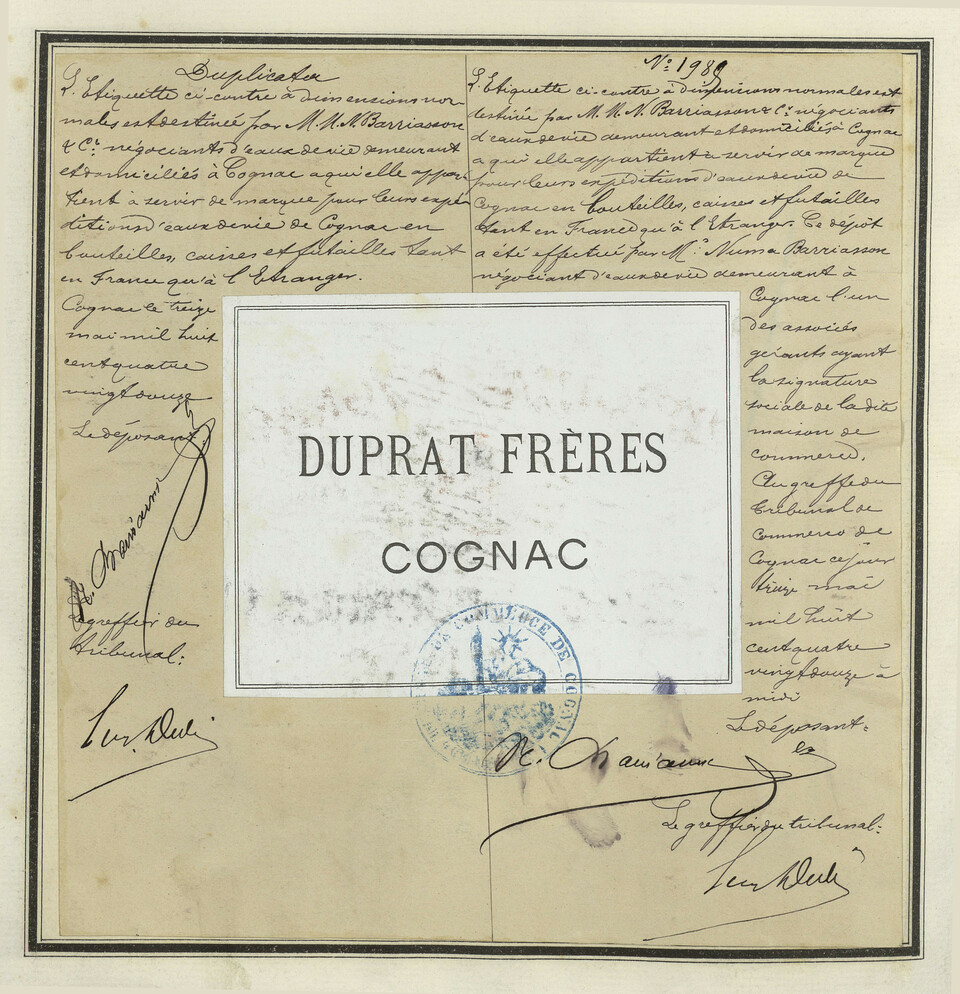 Duplicata
L'Etiquette ci-contre à dimensions nor-
males est destinée par M.M. N. Barriasson
& Cie négociants d'eaux de vie demeurant
et domiciliés à Cognac a qui elle appar-
tient à servir de marque pour leurs expé-
ditions d'eaux de vie de Cognac en
bouteilles, caisses et futailles tant
en France qu'à l'Etranger.
Cognac le treize
mai mil huit
cent quatre
vingt douze
Le déposant
N. Barriasson
Le greffier du
tribunal:
No 1989
L'Etiquette ci-contre à dimensions normales est
destinée par M.M. N. Barriasson & Cie négociants
d'eaux de vie demeurant et domiciliés à Cognac
a qui elle appartient à servir de marque
pour leurs expéditions d'eaux de vie de
Cognac en bouteilles, caisses et futailles
tant en France qu'à l'Etranger. Ce dépôt
a été effectué par Mr Numa Barriasson
négociant d'eaux de vie demeurant à
Cognac l'un
des associés
gérants ayant
la signature
sociale de la dite
maison de
commerce.
Au greffe du
tribunal de
commerce de
Cognac ce jour
treize mai
mil huit
cent quatre
vingt douze à
midi
Le déposant
N. Barriasson
Le greffier du tribunal:
DUPRAT FRÈRES
COGNAC
DE COMMERCE DE COGNAC